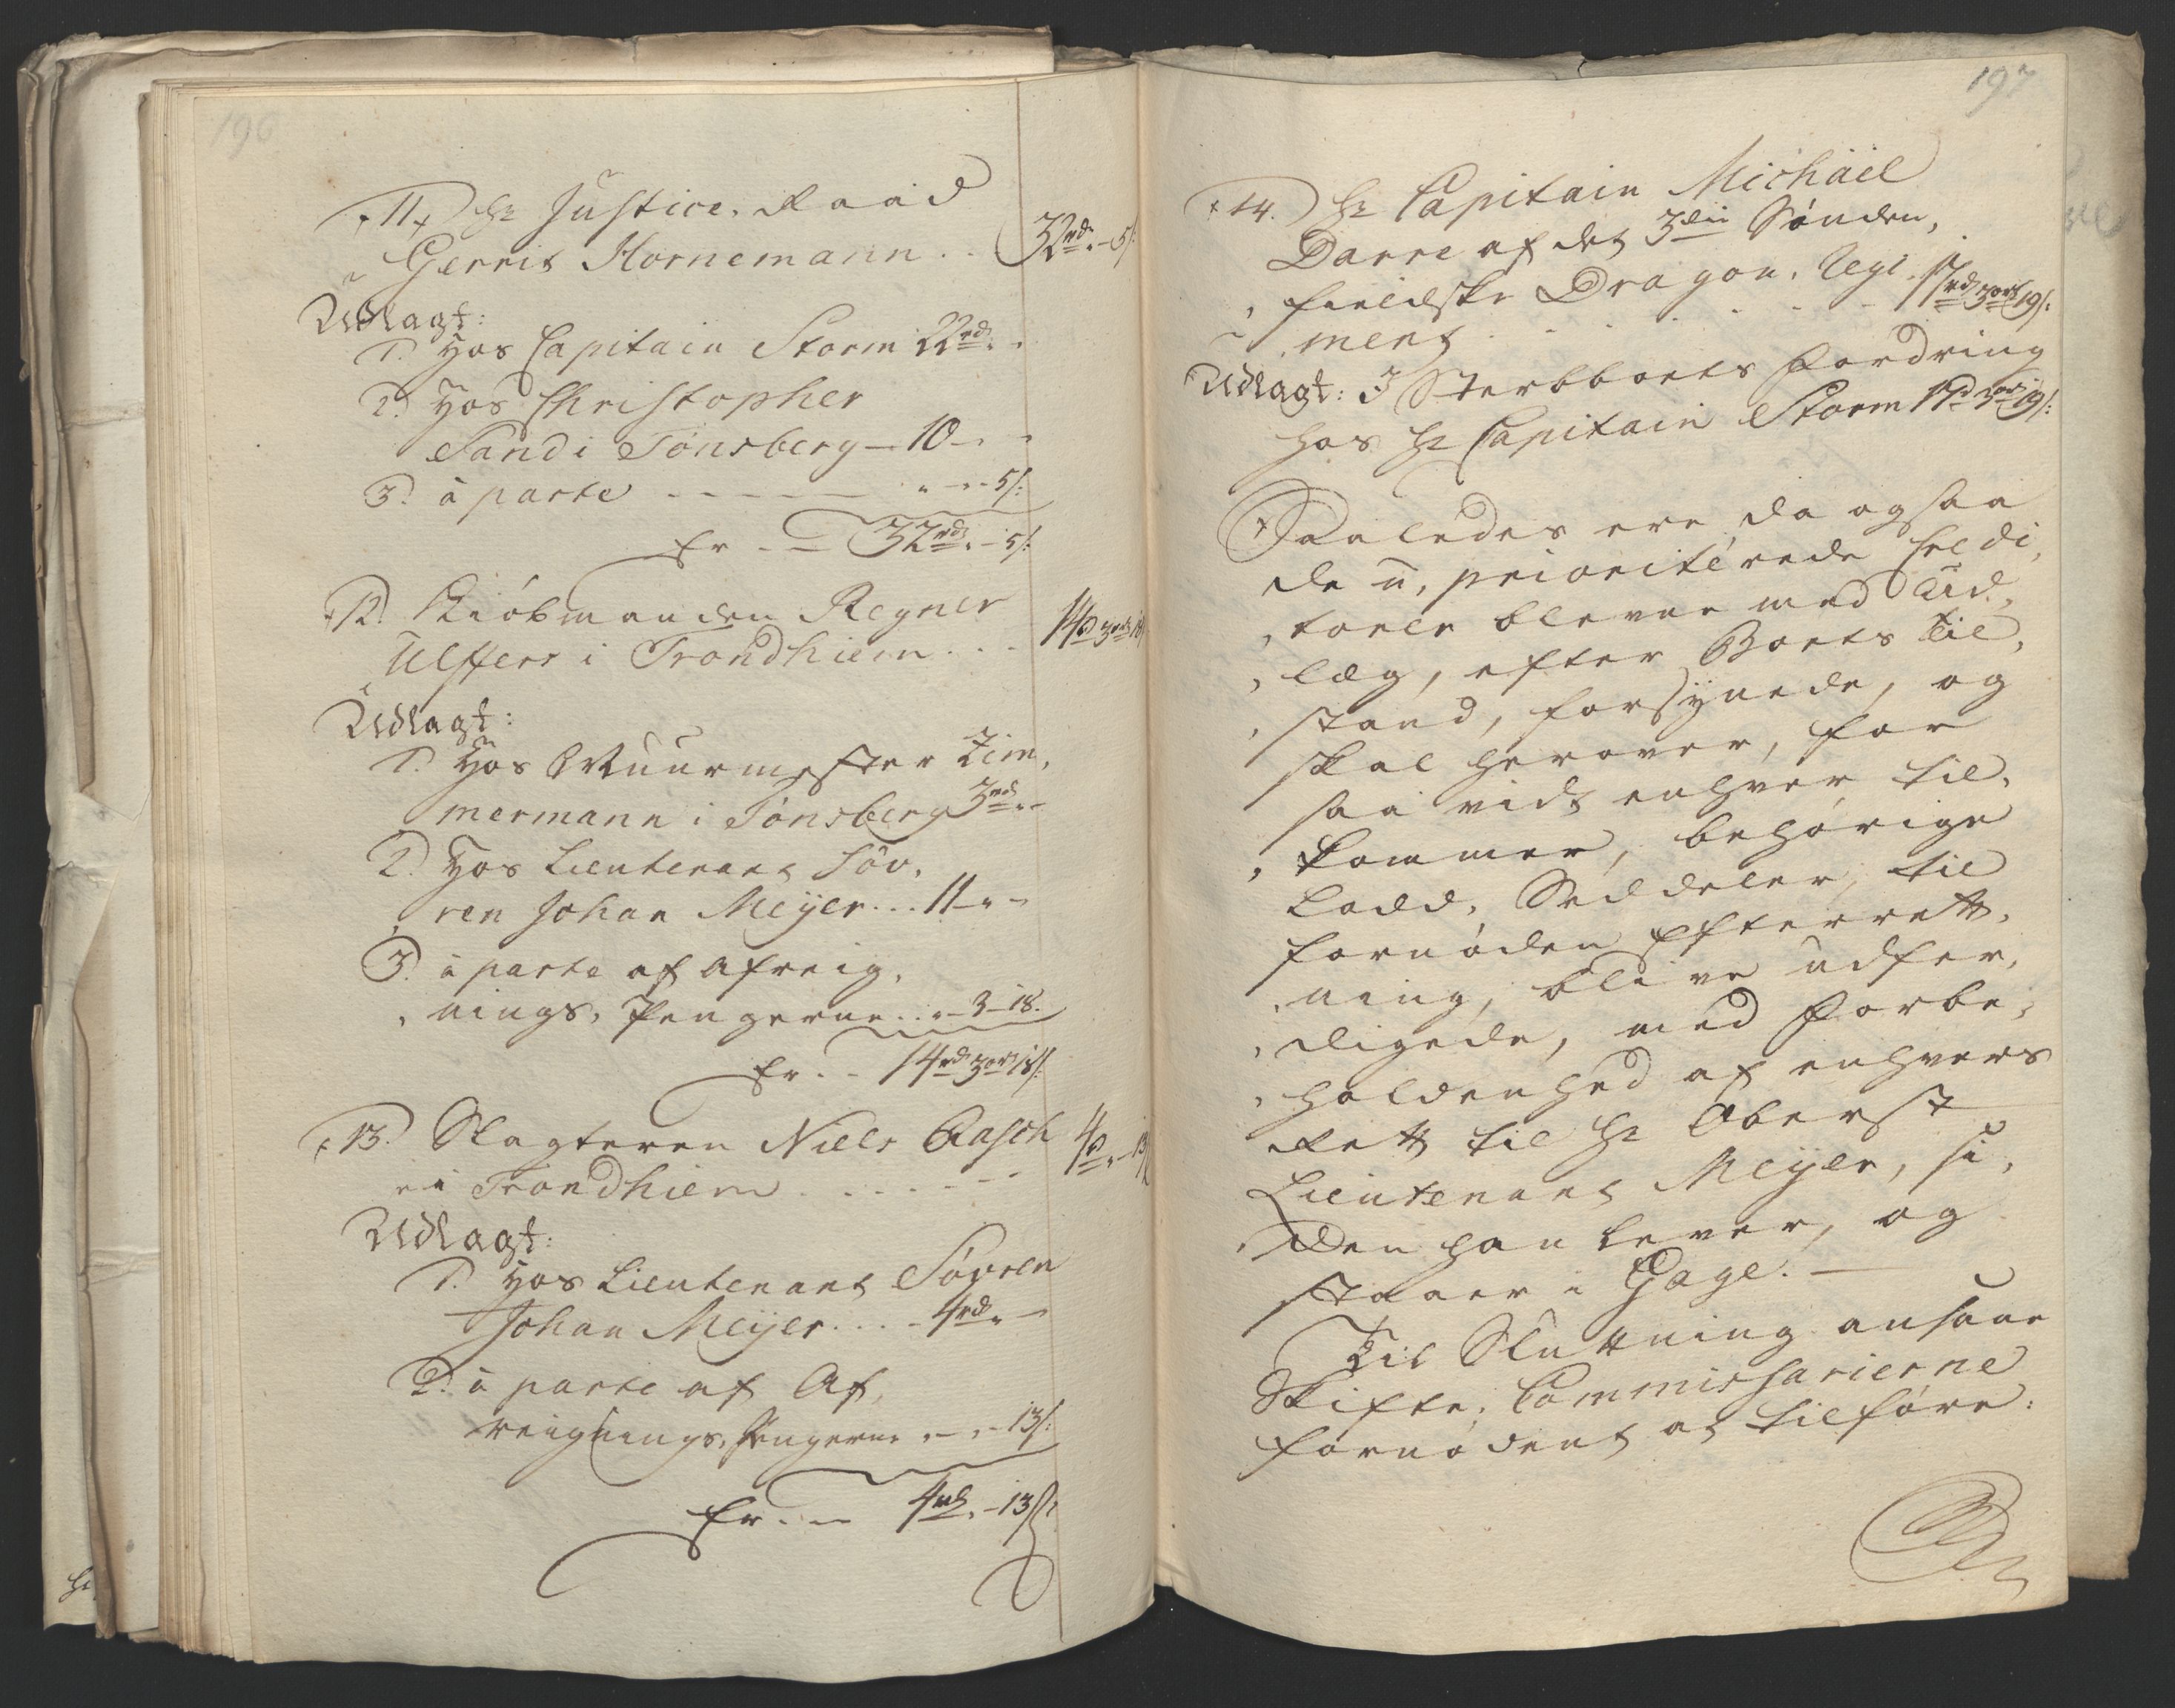 196
11. Hr Justice, Raad
Gerrit Hornemann .. 32rd " - 5ß:
Udlagt:
1. Hos Capitain Storm 22rd " "
2. Hos Christopher
Sand i Tønsberg - 10 - " "
3. à parte - - - - " - " - 5ß:
Er - - 32rd " - 5ß:
12. Kiøbmanden Regner
Ulffers i Trondhiem ... 14rd 3ort 18ß
Udlagt:
1. Hos Muurmester Zim,
mermann i Tønsberg 3rd " -
2. Hos Lieutenant Søv,
ren Johan Meÿer ... 11 - " -
3. à parte af Afreig,
nings, Pengerne .. " - 3 - 18.
Er .. 14rd 3ort 18ß:
13. Slagteren Niels Aasch
i Trondhiem . . . . . . 4rd " - 13ß
Udlagt:
1. Hos Lieutenant Søvren
Johan Meÿer .... 4rd " -
2. à parte af Af,
reignings, Pengerne " - " - 13ß:
Er . - 4rd " - 13ß:
197
14. Hr Capitain Michäel
Darre af det 3die Sønden,
fieldske Dragon, Regi
ment . . . . . . 17rd 3ort 19ß:
Udlagt: I Sterbboets Fordring
hos Hr Capitain Storm 17rd 3ort 19ß:
Saaledes ere da ogsaa
de u, prioritérede Credi,
torer blevne med Ud,
læg, efter Boets Til,
stand, forsÿnede, og
skal herover, for
saa vidt enhver til,
kommer, behørige
Lodd, Seddeler, til
fornøden Efterrett,
ning, blive udfer,
digede, med Forbe,
holdenhed af enhvers
Rett til Hr Oberst
Lieutenant Meÿer, si,
den han lever, og
staaer i Gage. —
Til Sluttning ansaae
Skifte, Commissarierne
fornødent at tilføre: